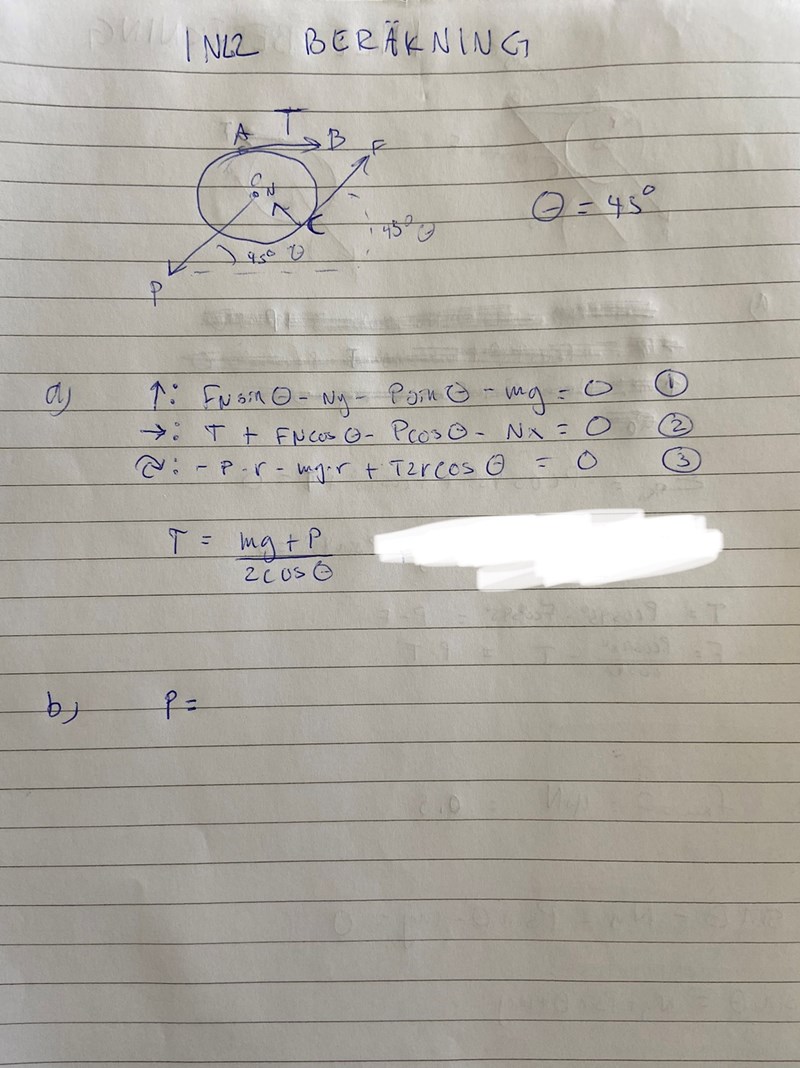 INL2 BERÄKNING
T
A B F
G N C
θ = 45°
45° θ
45° θ
P
a) ↑: FN sin θ - Ny - P sin θ - mg = 0 ①
→: T + FN cos θ - P cos θ - Nx = 0 ②
↷: - P·r - mg·r + T2r cos θ = 0 ③
T = mg + P
2 cos θ
b) P =